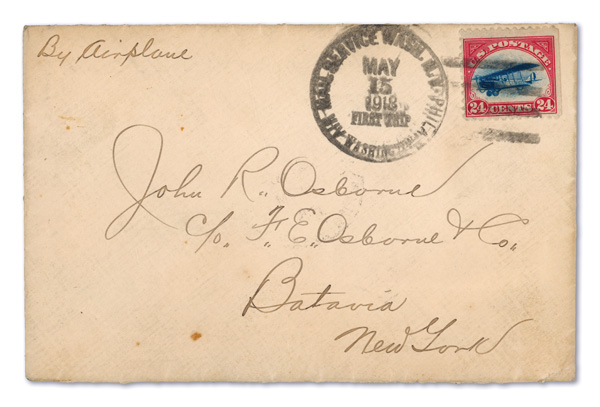 By Airplane
AIR MAIL SERVICE WASH. N.Y. PHILA.
MAY
15
1918
FIRST TRIP
WASHINGTON
U.S. POSTAGE
24 CENTS 24
John R. Osborne
c/o. F. E. Osborne & Co.,
Batavia
New York